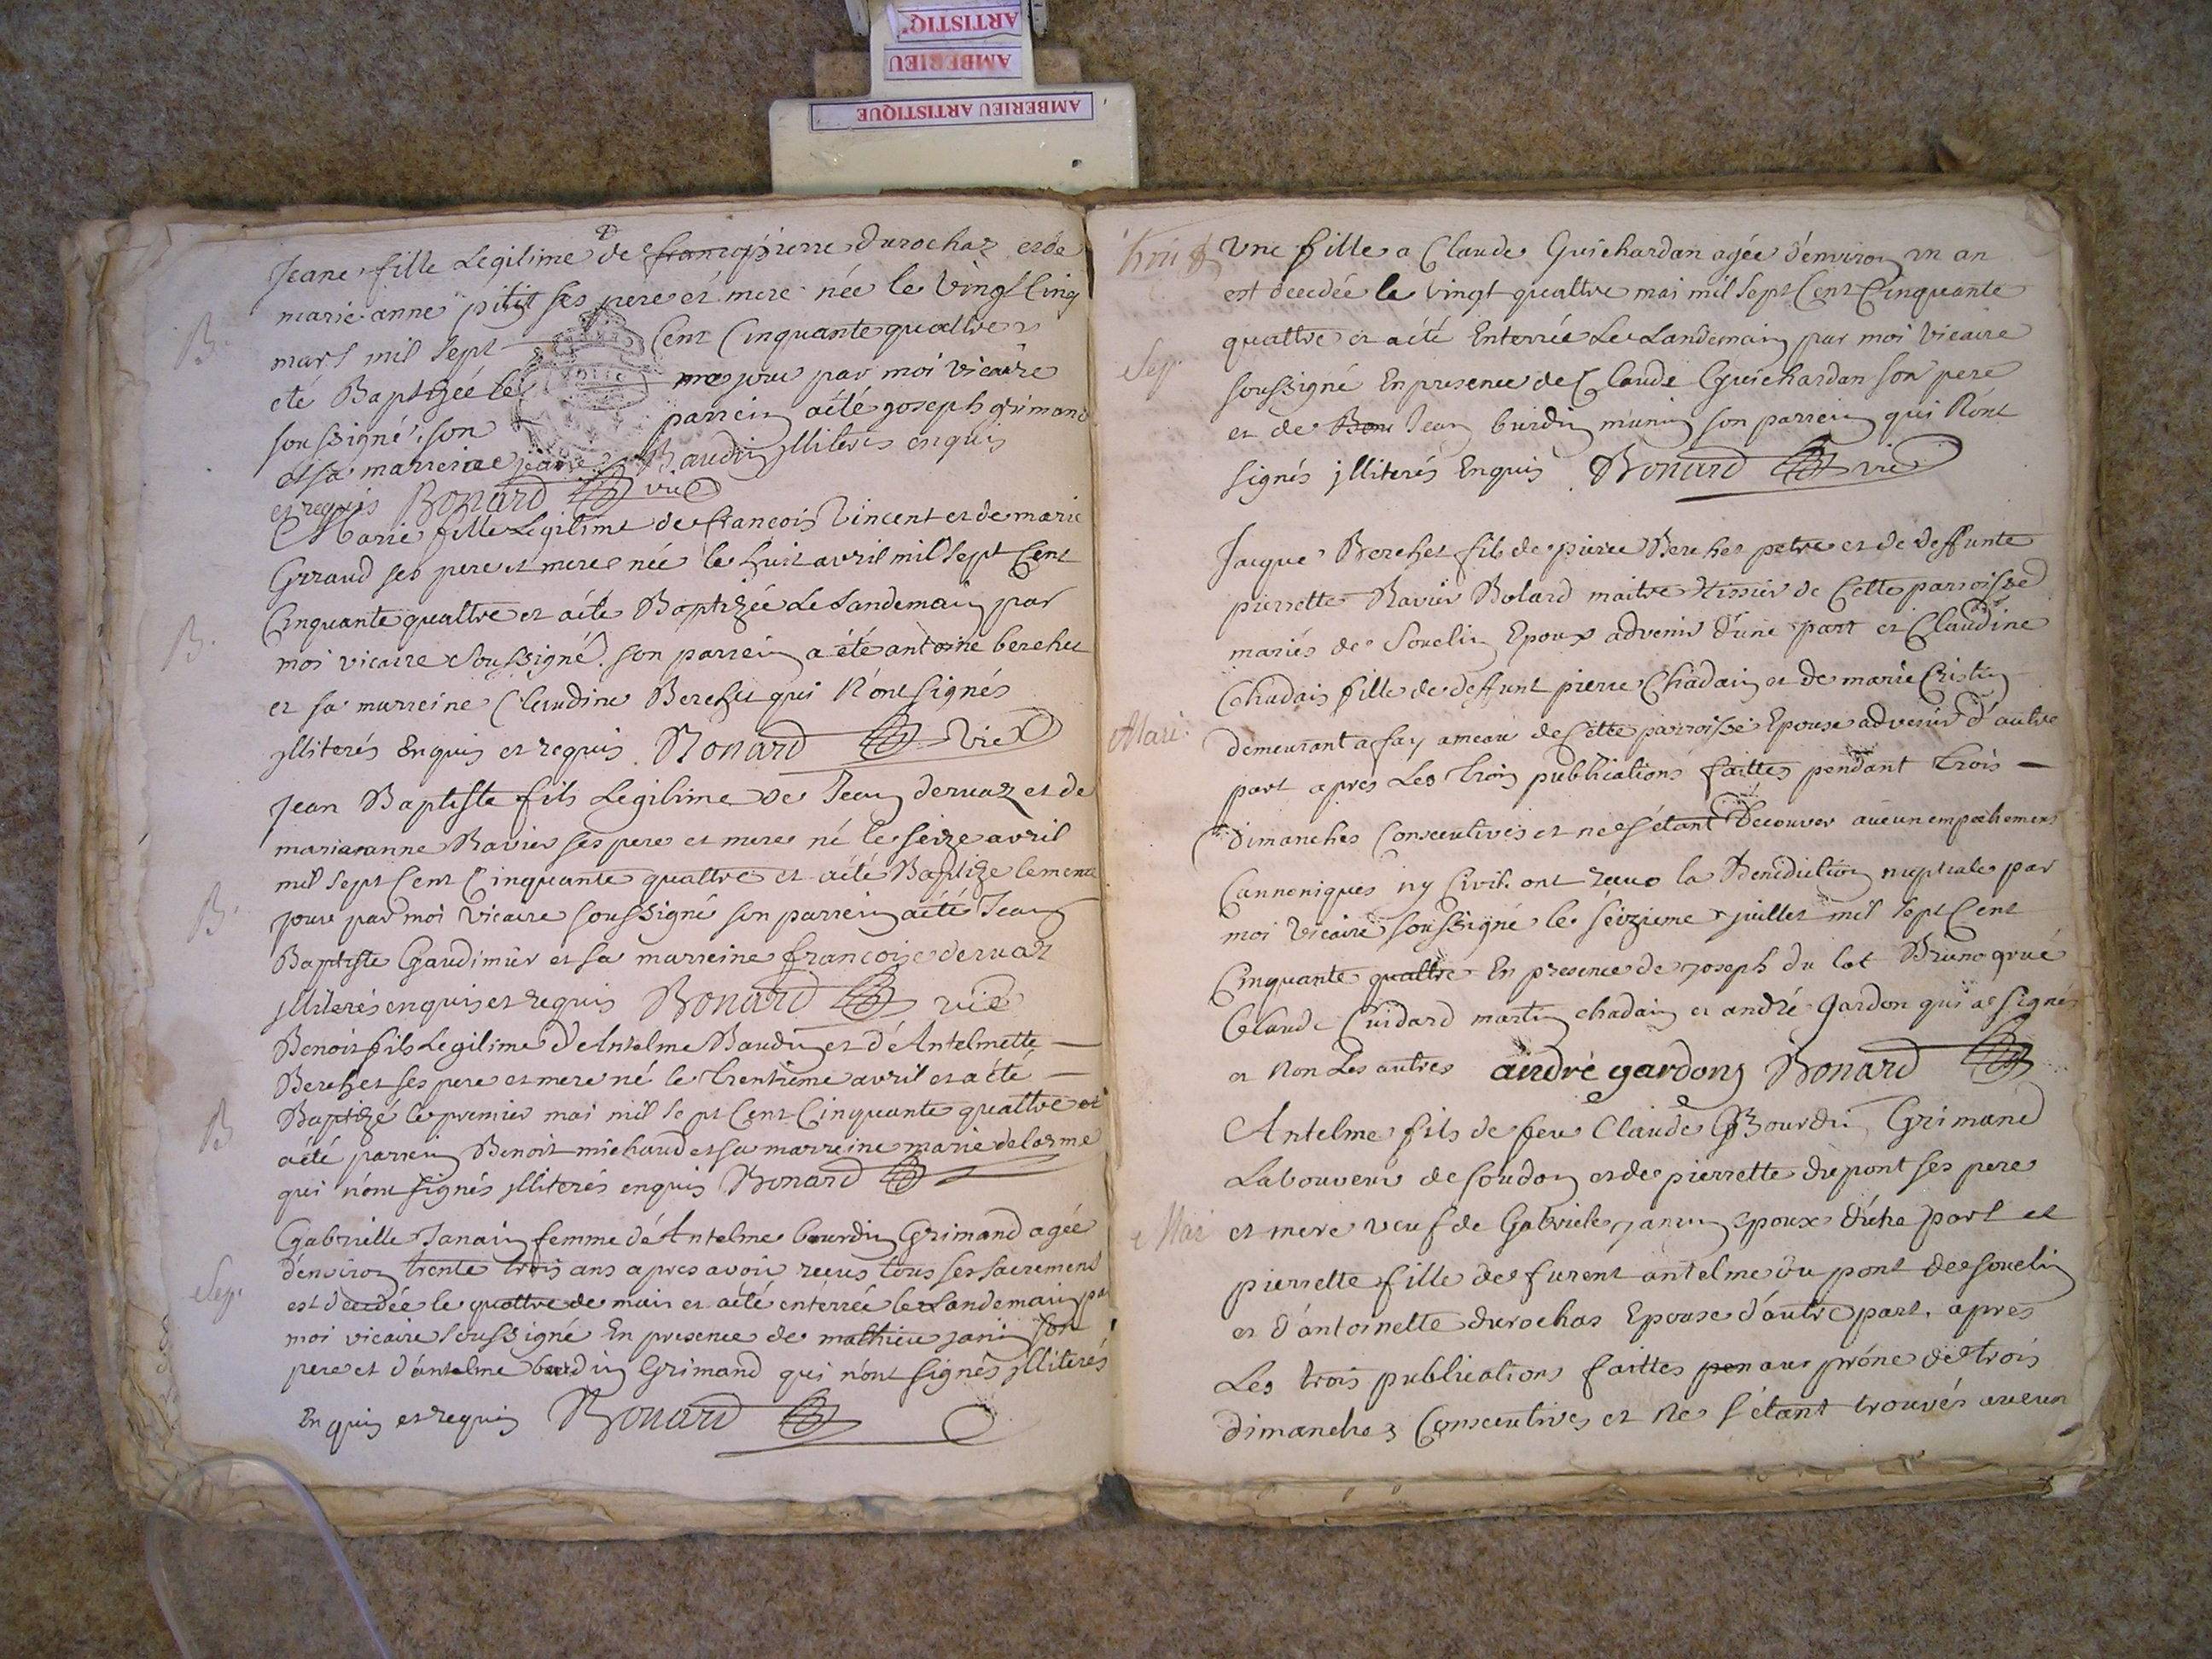 ARTISTIQ
AMBERIEU
AMBERIEU ARTISTIQUE
Jeane fille Legitime de francoi pierre durochaz et de
marie anne pitit ses pere et mere née le vingt Cinq
B.
mars mil sept Cent Cinquante quattre
eté Baptizée le jour par moi vicaire
soussigné, son parrein aété joseph grimand
et sa marreine jeane Baudin jlliterés enquis
et requis Bonard vic
Marie fille Legitime de francois Vincent et de marie
Giraud ses pere et mere née le huit avril mil sept Cent
Cinquante quattre et aété Baptizée Le Landemain par
B.
moi vicaire soussigné. son parrein a été antoine berchet
et sa marreine Claudine Berchet qui n'ont signés
jlliterés Enquis et requis. Bonard Vic
Jean Baptiste fils Legitime de Jean dervaz et de
marieanne Ravier ses pere et mere né le seize avril
mil sept Cent Cinquante quattre et aété Baptize le meme
B.
jour par moi vicaire soussigné son parrein aété Jean
Baptiste Gaudimier et sa marreine francoise dervaz
jlliterés enquis et requis Bonard vic
Benoit fils Legitime d'Antelme Baudin et d'Antelmette
Berchet ses pere et mere né le trentieme avril et a été
B
Baptizé le premier mai mil sept Cent Cinquante quattre et
aété parrein Benoit michaud et sa marreine marie delorme
qui n'ont signés jlliterés enquis Bonard
Gabrielle Janain femme d'Antelme bourdin Grimand agée
Sep.
d'environ trente trois ans apres avoir recus tous ses sacremens
est decedée le quattre de mai et aété enterrée le Landemain par
moi vicaire soussigné En presence de mathieu janin son
pere et d'antelme bourdin Grimand qui n'ont signés jlliterés
Enquis et requis Bonard
Une fille a Claude Guichardan agée d'environ un an
est decedée le vingt quattre mai mil sept Cent Cinquante
quattre et aété Enterrée Le Landemain par moi vicaire
Sep.
soussigné En presence de Claude Guichardan son pere
et de Jean burdin munin son parrein qui n'ont
signés jlliterés Enquis Bonard vic
Jacque Berchet fils de pierre Berchet petre et de deffunte
pierrette Ravier Bolard maitre tissier de Cette parroisse
mariés de Souclin Epoux advenir d'une part et Claudine
Chadais fille de deffunt pierre Chadain et de marie Cristin
Mari.
demeurant a fay ameau de Cette parroisse Epouse advenir d'autre
part apres Les trois publications faittes pendant trois
dimanches Consecutives et ne s'étant decouver aucun empechement
Cannoniques ny Civils ont recus la Benediction nuptiale par
moi vicaire soussigné le seizieme juillet mil sept Cent
Cinquante quattre En presence de joseph du lot Bruno grué
Claude Cuidard martin chadain et andré gardon qui a signés
et non Les autres andré gardon Bonard
Antelme fils de feu Claude Bourdin Grimand
Laboureur de soudon et de pierrette dupont ses pere
Mar
et mere veuf de Gabriele janin epoux d'une part et
pierrette fille de furent antelme du pont de souclin
et d'antoinette durochas Epouse d'autre part. apres
Les trois publications faittes pen au prône de trois
dimanches Consecutives et ne s'étant trouvés aucun